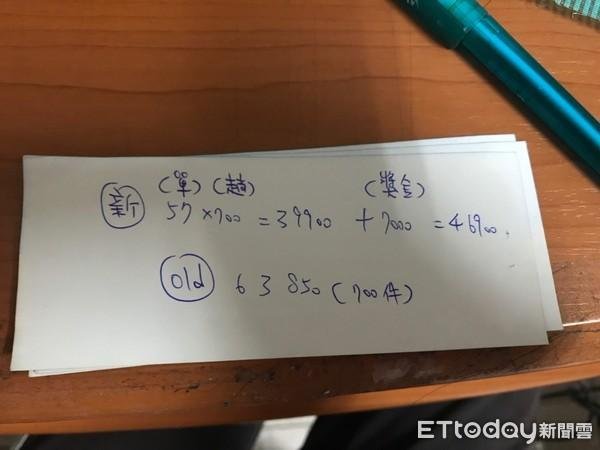 (單) (趟) (獎金)
新 57 × 700 = 39900 + 7000 = 46900.
old 63850 (700件)
ETtoday新聞雲